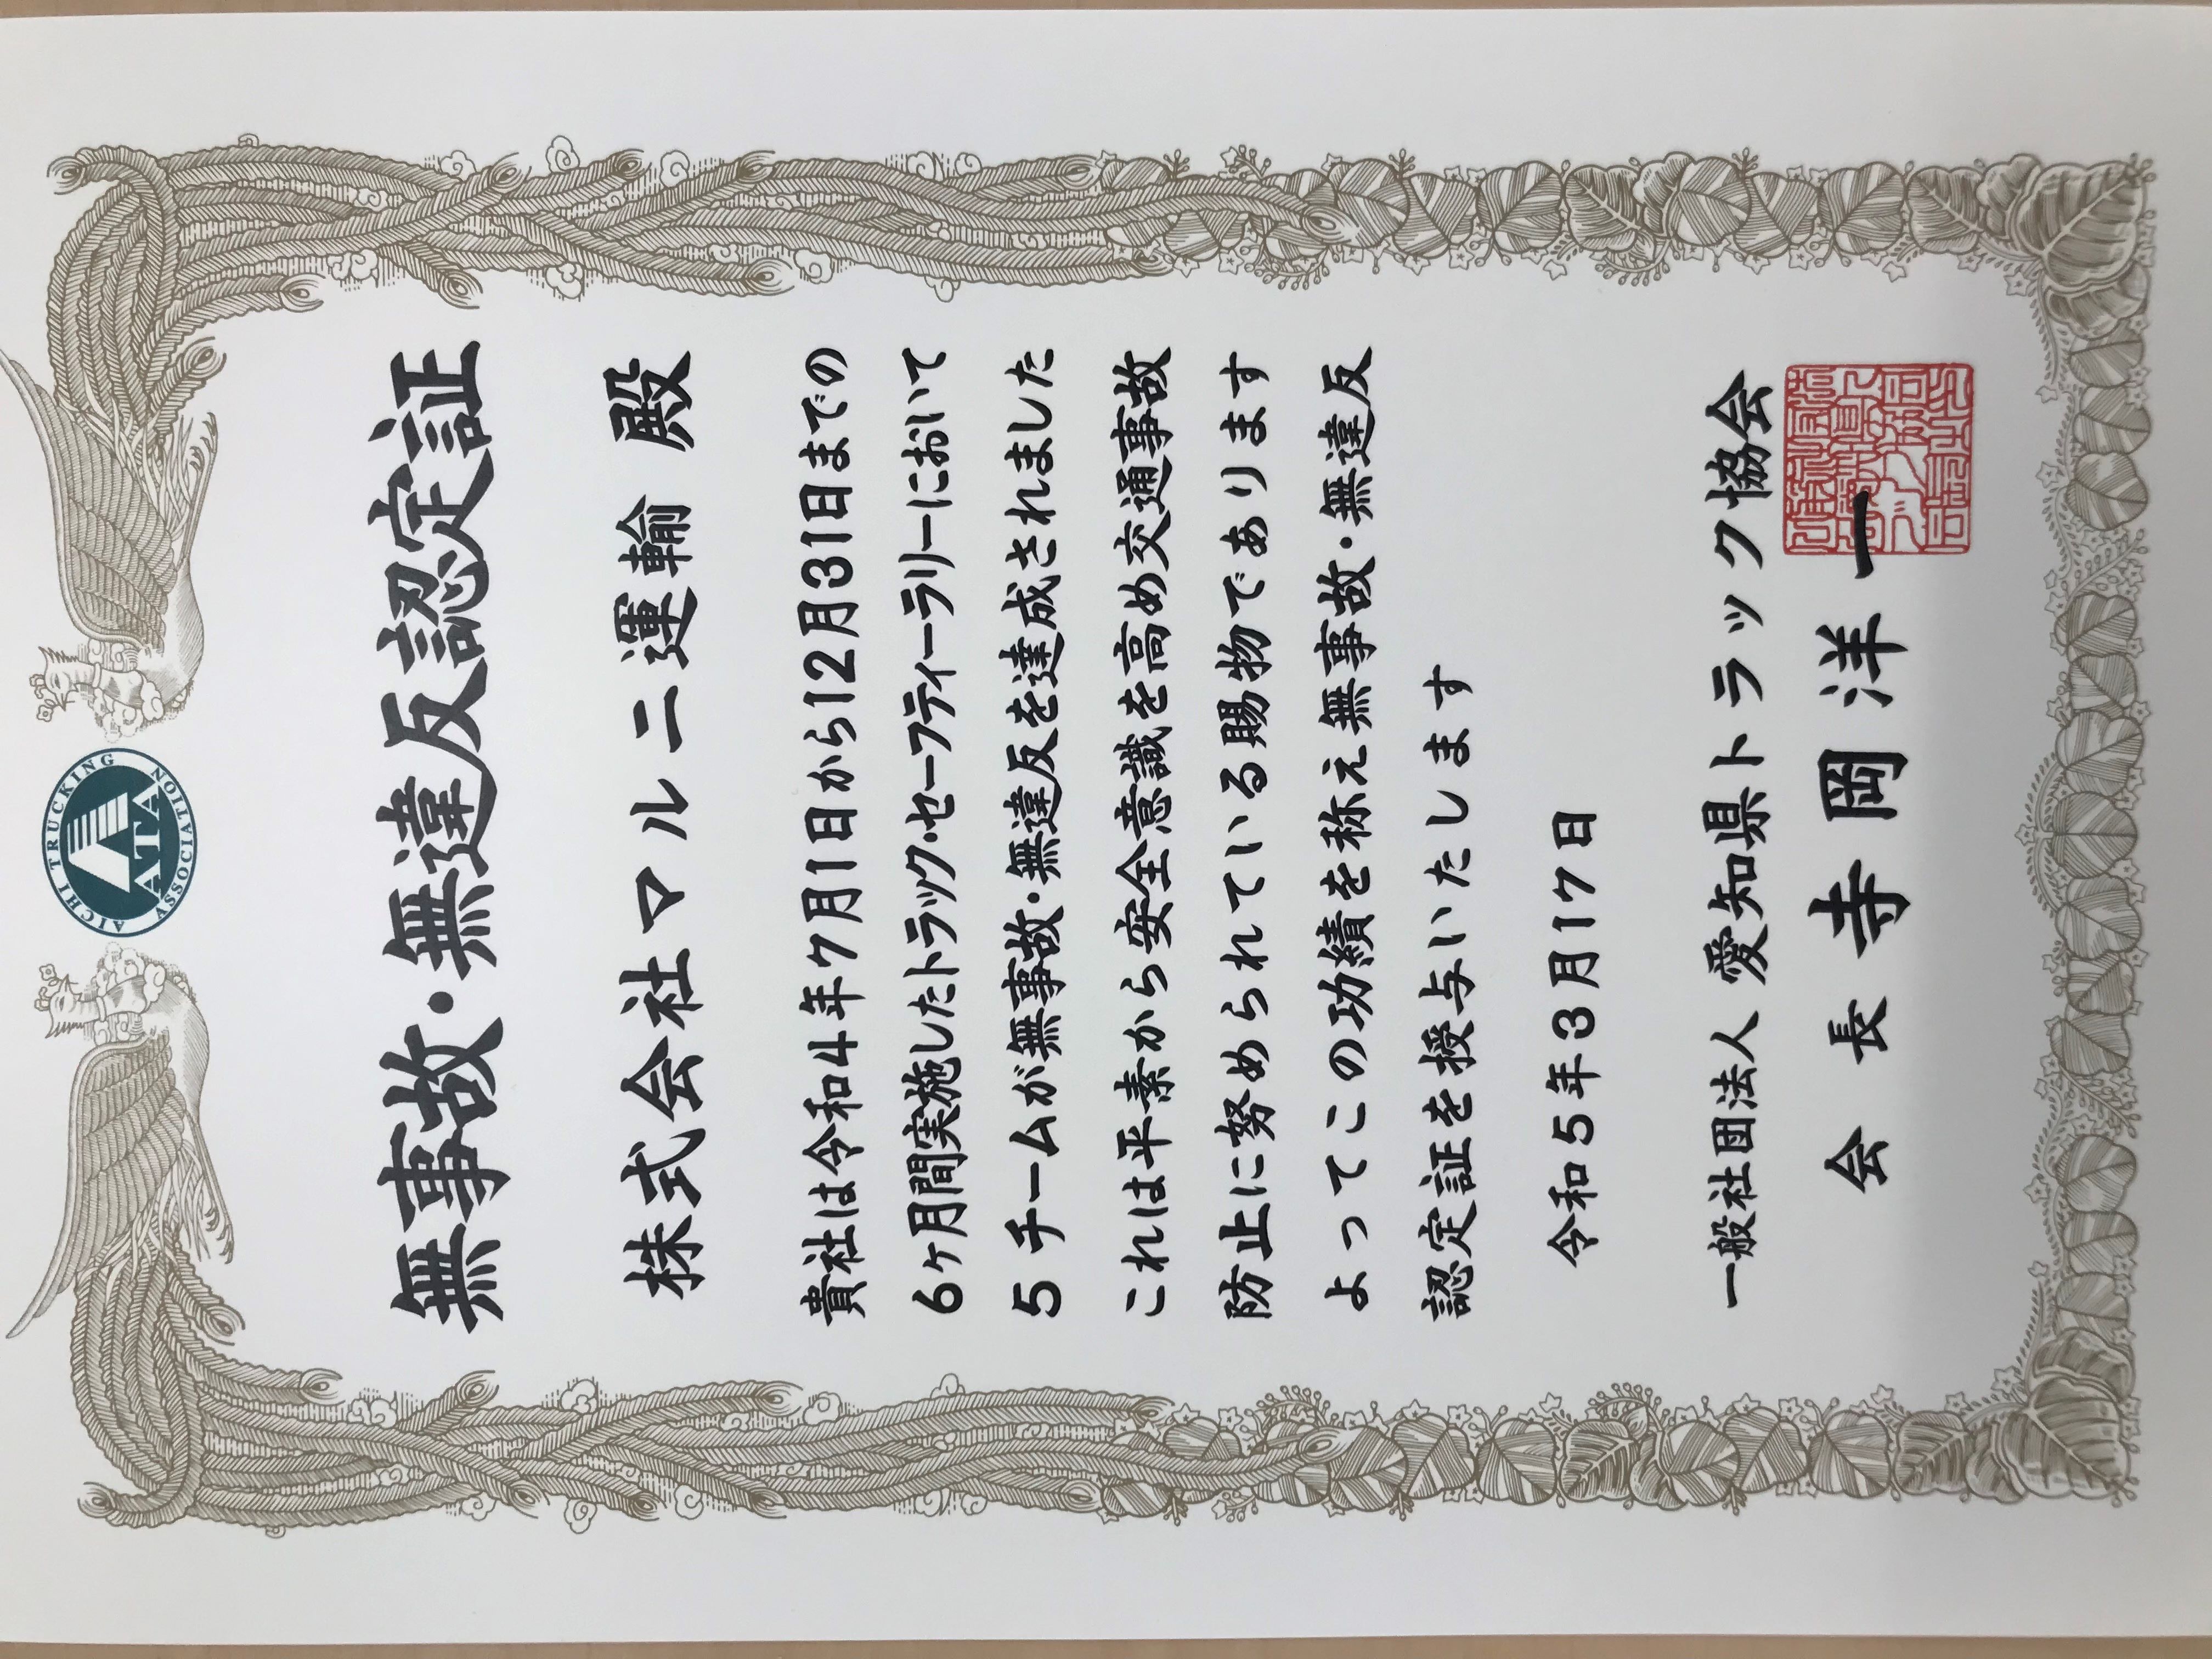 AICHI TRUCKING ASSOCIATION
ATA
無事故・無違反認定証
株式会社マルニ運輸 殿
貴社は令和4年7月1日から12月31日までの
6ヶ月間実施したトラック・セーフティーラリーにおいて
5チームが無事故・無違反を達成されました
これは平素から安全意識を高め交通事故
防止に努められている賜物であります
よってこの功績を称え無事故・無違反
認定証を授与いたします
令和5年3月17日
一般社団法人 愛知県トラック協会
会長 寺岡洋一